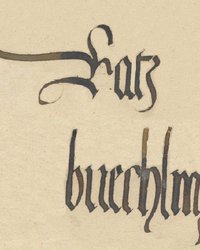 Ratz
buechlin